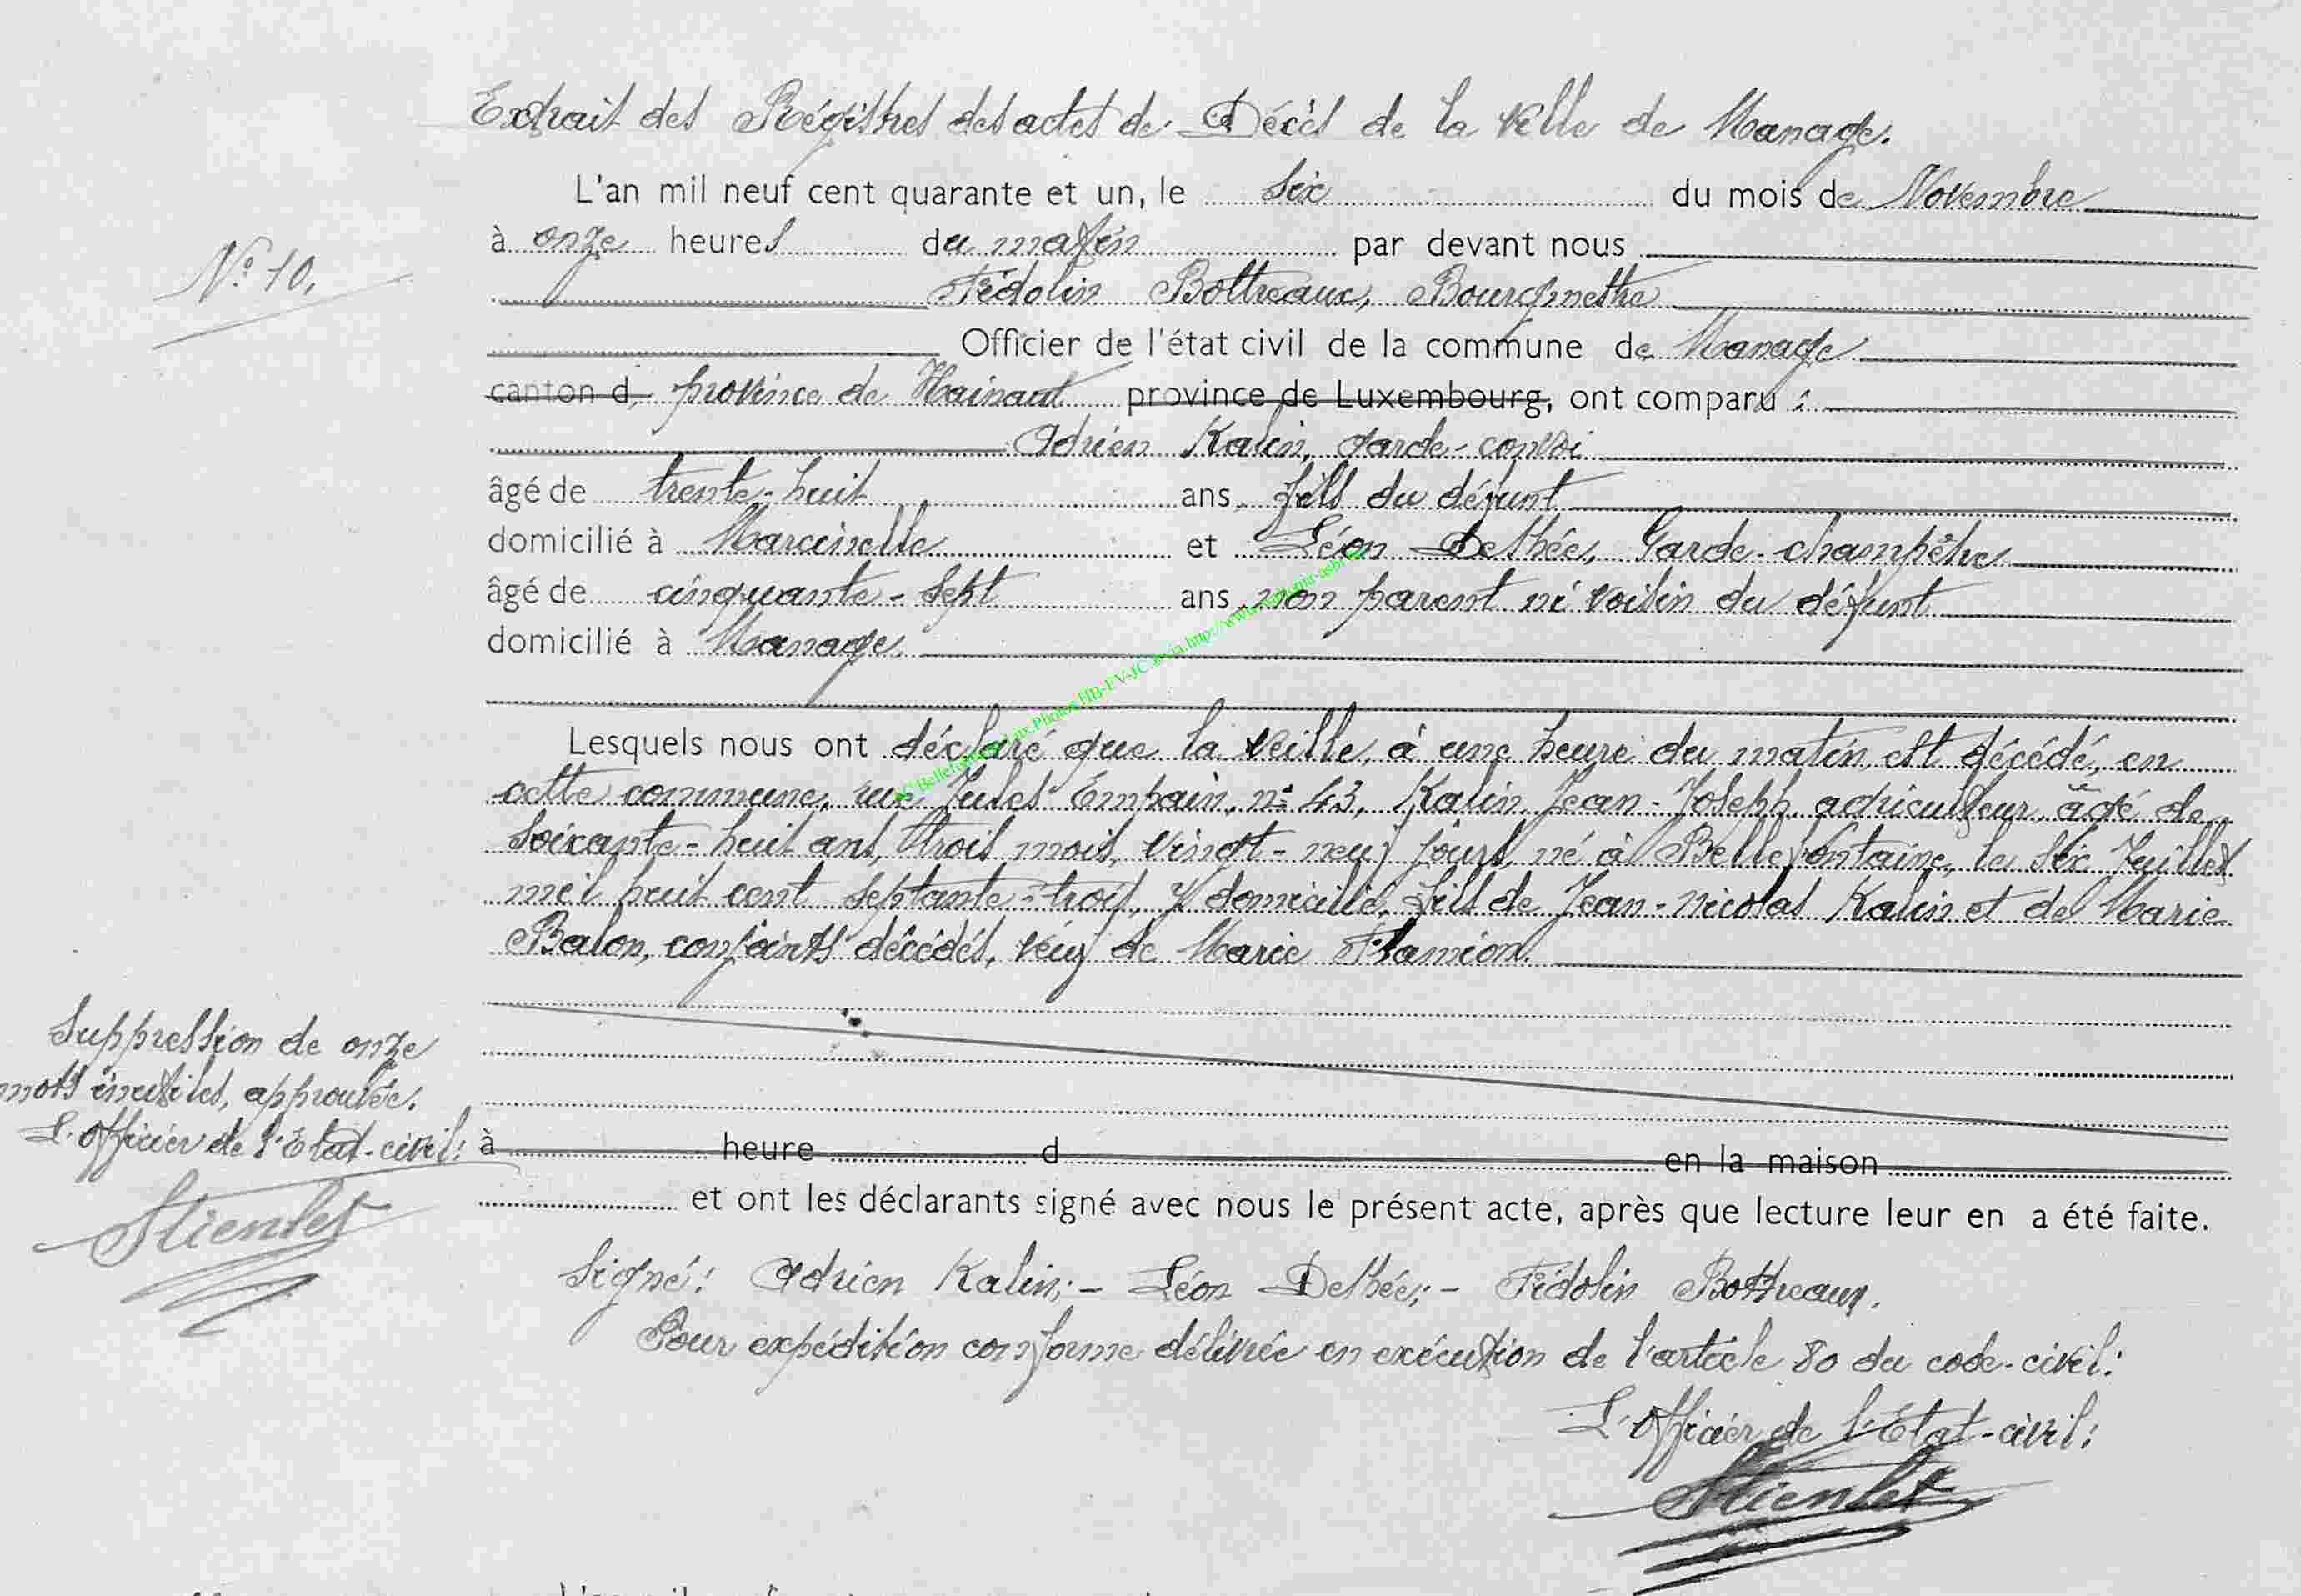 Extrait des Régistres des actes de Décès de la Ville de Manage.
L'an mil neuf cent quarante et un, le six du mois de Novembre
N° 10.
à onze heures du matin par devant nous
Fidolin Bottreaux, Bourgmestre
Officier de l'état civil de la commune de Manage
canton d, province de Hainaut province de Luxembourg, ont comparu :
Adrien Kalin, garde-convoi
âgé de trente-huit ans, fils du défunt
domicilié à Marcinelle et Léon Dethée, Garde-champêtre
âgé de cinquante-sept ans, non parent ni voisin du défunt
domicilié à Manage
Lesquels nous ont déclaré que la veille, à une heure du matin, est décédé, en
cette commune, rue Jules Empain, n° 43, Kalin, Jean-Joseph, agriculteur, âgé de
soixante-huit ans, trois mois, vingt-neuf jours, né à Bellefontaine, le six Juillet
mil huit cent septante-trois, y domicilié, fils de Jean-Nicolas Kalin et de Marie
Balon, conjoints décédés, veuf de Marie Flamion.
Suppression de onze
mots inutiles, approuvée.
L'officier de l'Etat-civil:
Stienlet
à heure d en la maison
et ont les déclarants signé avec nous le présent acte, après que lecture leur en a été faite.
Signé: Adrien Kalin; - Léon Dethée; - Fidolin Bottreaux.
Pour expédition conforme délivrée en exécution de l'article 80 du code-civil:
L'officier de l'Etat-civil:
Stienlet